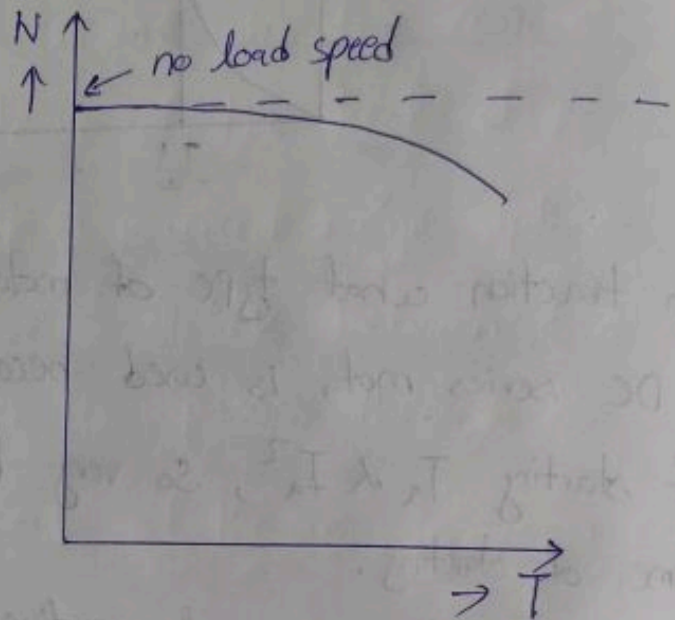 N
↑
no load speed
→ T